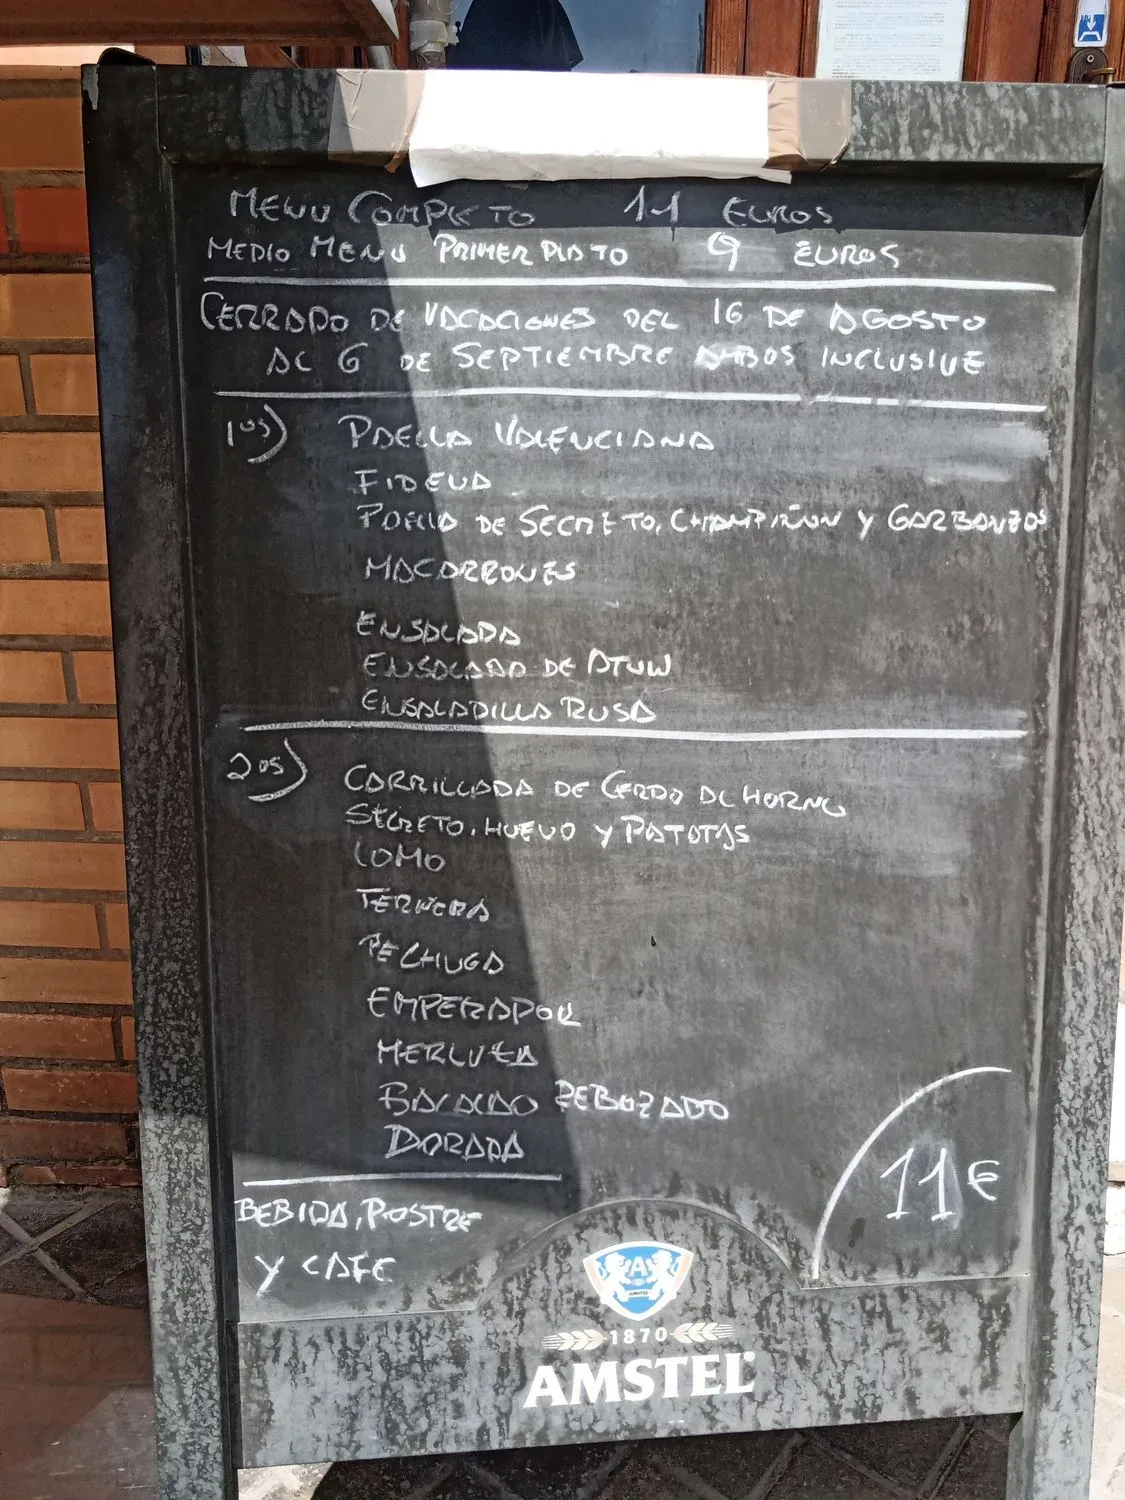 MENU COMPLETO 11 EUROS
MEDIO MENU PRIMER PLATO 9 EUROS
CERRADO DE VACACIONES DEL 16 DE AGOSTO
AL 6 DE SEPTIEMBRE AMBOS INCLUSIVE
1os) PAELLA VALENCIANA
FIDEUA
PAELLA DE SECRETO, CHAMPIÑON Y GARBANZOS
MACARRONES
ENSALADA
ENSALADA DE ATUN
ENSALADILLA RUSA
2os) CARRILLADA DE CERDO AL HORNO
SECRETO, HUEVO Y PATATAS
LOMO
TERNERA
PECHUGA
EMPERADOR
MERLUZA
BACALAO REBOZADO
DORADA
BEBIDA, POSTRE
Y CAFE
11€
A
AMSTEL
1870
AMSTEL